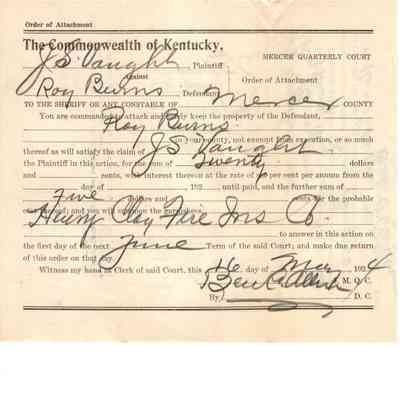 Order of Attachment
The Commonwealth of Kentucky,
MERCER QUARTERLY COURT
J.S. Vaught, Plaintiff
Against
Order of Attachment
Roy Burns, Defendant
TO THE SHERIFF OR ANY CONSTABLE OF Mercer COUNTY
You are commanded to attach and safely keep the property of the Defendant,
Roy Burns
in your county, not exempt from execution, or so much
thereof as will satisfy the claim of J.S. Vaught
the Plaintiff in this action, for the sum of Twenty dollars
and cents, with interest thereon at the rate of 6 per cent per annum from the
day of 192 until paid, and the further sum of
five dollars and cents for the probable
and you will summon the garnishee
Henry Clay Fire Ins Co.
to answer in this action on
the first day of the next June Term of the said Court; and make return
of this order on that day.
Witness my hand as Clerk of said Court, this 16 day of May 1924
M. Q. C.
By D. C.